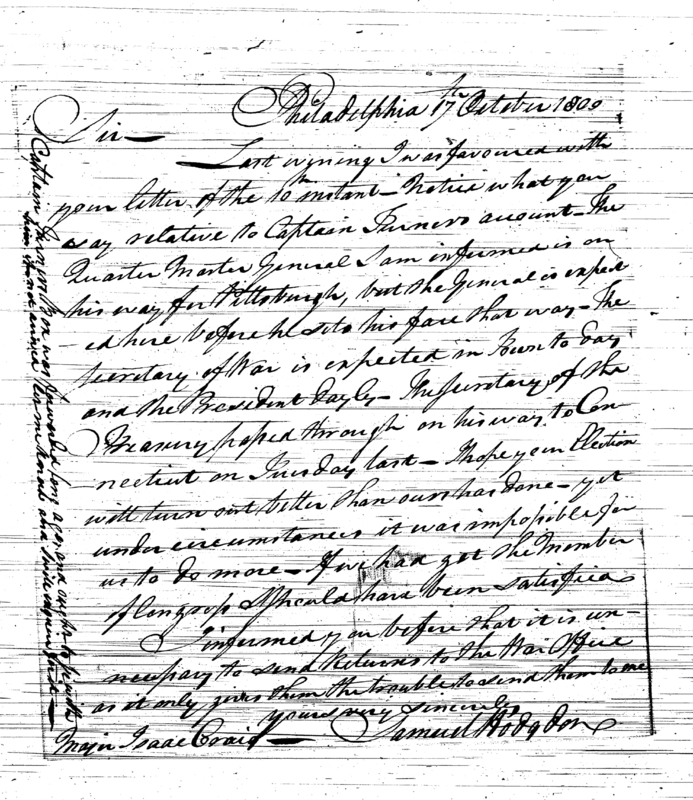 Philadelphia 17th October 1800
Sir —
Last evening I was favoured with
your letter of the 10th instant — Notice what you
say relative to Captain Turners account — The
Quarter Master General I am informed is on
his way for Pittsburgh, but the General is expect
-ed here before he sets his face that way — The
Secretary of War is expected in Town to day
and the President dayly — The Secretary of the
Treasury passed through on his way to Con
necticut on Tuesday last — I hope your Election
will turn out better than ours has done — yet
under circumstances it was impossible for
us to do more — If we had got the Member
of Congress I should have been satisfied
I informed you before that it is un-
necessary to send Returns to the War Office
as it only gives them the trouble to send them to me
yours very sincerely
Samuel Hodgdon
Major Isaac Craig —
Captain Turners Box was forwarded long ago, and ought to be with
him